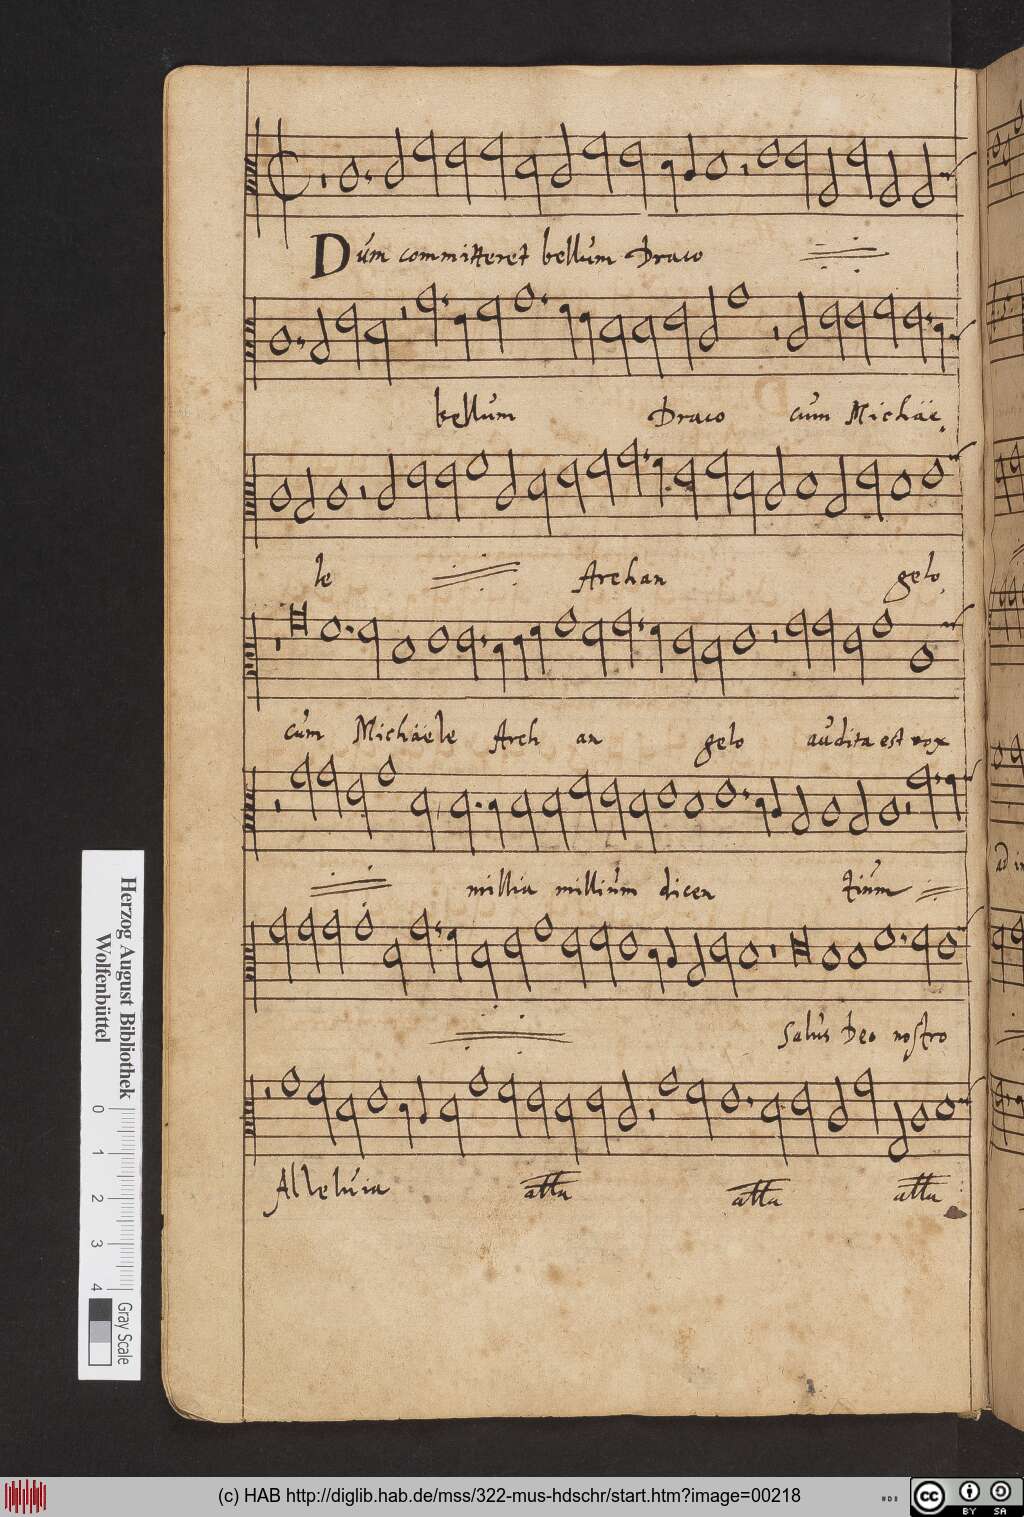 Dum committeret bellum Draco
bellum Draco cum Michäe-
le Archan gelo.
cum Michäele Arch an gelo audita est vox
millia millium dicen tium
Salus Deo nostro
Alleluia alla alla alla
ad in
Herzog August Bibliothek
Wolfenbüttel
0 1 2 3 4
Gray Scale
(c) HAB http://diglib.hab.de/mss/322-mus-hdschr/start.htm?image=00218
cc BY SA